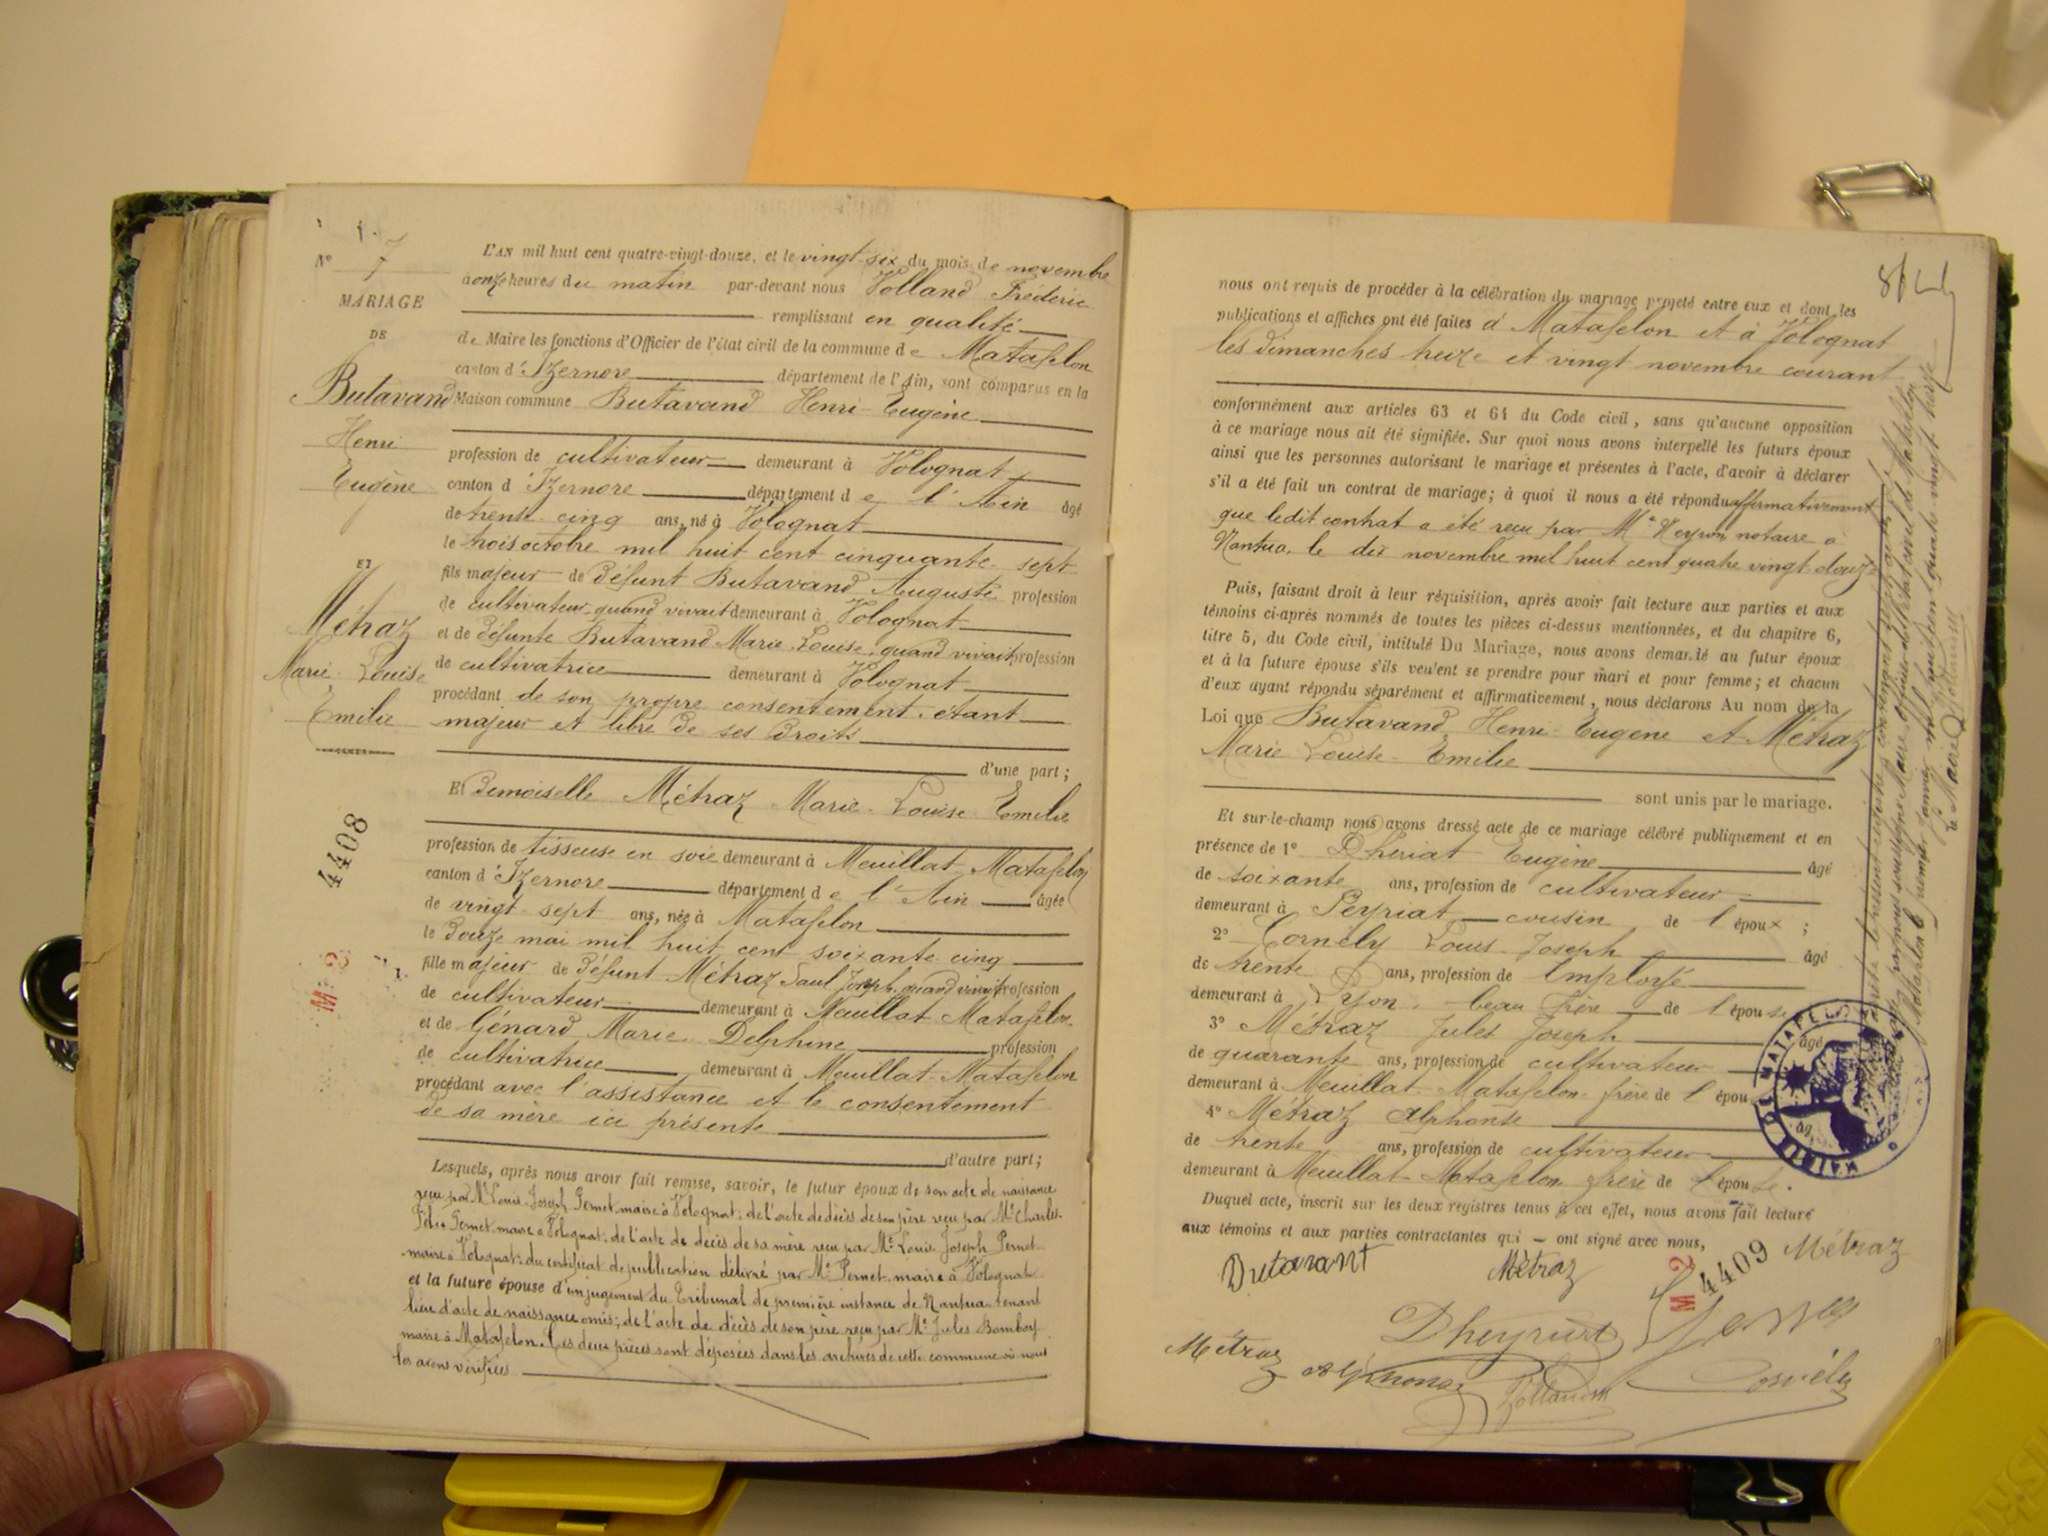 N° 7
MARIAGE
DE
Butavand
Henri
Eugène
ET
Métraz
Marie Louise
Emilie
4408
M 2
L'AN mil huit cent quatre-vingt-douze, et le vingt-six du mois de novembre
a onze heures du matin par-devant nous Volland Frédéric
remplissant en qualité
de Maire les fonctions d'Officier de l'état civil de la commune de Matafelon
canton d'Izernore département de l'Ain, sont comparus en la
Maison commune Butavand Henri-Eugène
profession de cultivateur demeurant à Volognat
canton d'Izernore département de l'Ain âgé
de trente-cinq ans, né à Volognat
le trois octobre mil huit cent cinquante-sept
fils majeur de défunt Butavand Auguste profession
de cultivateur quand vivait demeurant à Volognat
et de défunte Butavand Marie-Louise, quand vivait profession
de cultivatrice demeurant à Volognat
procédant de son propre consentement, étant
majeur et libre de ses droits
d'une part;
Et Demoiselle Métraz Marie-Louise Emilie
profession de tisseuse en soie demeurant à Meuillat Matafelon
canton d'Izernore département de l'Ain âgée
de vingt-sept ans, née à Matafelon
le douze mai mil huit cent soixante cinq
fille majeur de défunt Métraz Paul Joseph, quand vivait profession
de cultivateur demeurant à Meuillat Matafelon
et de Génard Marie Delphine profession
de cultivatrice demeurant à Meuillat-Matafelon
procédant avec l'assistance et le consentement
de sa mère ici présente
d'autre part;
Lesquels, après nous avoir fait remise, savoir, le futur époux de son acte de naissance
reçu par Mr Louis Joseph Pernet maire à Volognat; de l'acte de décès de son père reçu par Mr Charles
Félix Pernet maire à Volognat; de l'acte de décès de sa mère reçu par Mr Louis Joseph Pernet
maire à Volognat; du certificat de publication délivré par Mr Pernet maire à Volognat
et la future épouse d'un jugement du Tribunal de première instance de Nantua tenant
lieu d'acte de naissance omis; de l'acte de décès de son père reçu par Mr Jules
maire à Matafelon. Ces deux pièces sont déposées dans les archives de cette commune où nous
les avons vérifiées
nous ont requis de procéder à la célébration du mariage projeté entre eux et dont les
publications et affiches ont été faites à Matafelon et à Volognat
les dimanches treize et vingt novembre courant
conformément aux articles 63 et 64 du Code civil, sans qu'aucune opposition
à ce mariage nous ait été signifiée. Sur quoi nous avons interpellé les futurs époux
ainsi que les personnes autorisant le mariage et présentes à l'acte, d'avoir à déclarer
s'il a été fait un contrat de mariage; à quoi il nous a été répondu affirmativement
que ledit contrat a été reçu par Me Neyron notaire à
Nantua, le dix novembre mil huit cent quatre vingt-douze
Puis, faisant droit à leur réquisition, après avoir fait lecture aux parties et aux
témoins ci-après nommés de toutes les pièces ci-dessus mentionnées, et du chapitre 6,
titre 5, du Code civil, intitulé Du Mariage, nous avons demandé au futur époux
et à la future épouse s'ils veulent se prendre pour mari et pour femme; et chacun
d'eux ayant répondu séparément et affirmativement, nous déclarons Au nom de la
Loi que Butavand, Henri-Eugène et Métraz
Marie Louise-Emilie
sont unis par le mariage.
Et sur-le-champ nous avons dressé acte de ce mariage célébré publiquement et en
présence de 1° Dhériat Eugène âgé
de soixante ans, profession de cultivateur
demeurant à Peyriat cousin de l'époux;
2° Cornély Louis Joseph âgé
de trente ans, profession de Employé
demeurant à Lyon, beau frère de l'épouse
3° Métraz Jules Joseph âgé
de quarante ans, profession de cultivateur
demeurant à Meuillat-Matafelon frère de l'épou
4° Métraz Alphonse âg
de trente ans, profession de cultivateur
demeurant à Meuillat-Matafelon frère de l'épouse.
Duquel acte, inscrit sur les deux registres tenus à cet effet, nous avons fait lecture
aux témoins et aux parties contractantes qui – ont signé avec nous,
Butavant Métraz Métraz
M 2 4409
Métraz Alphonse
MAIRIE DE MATAFELON